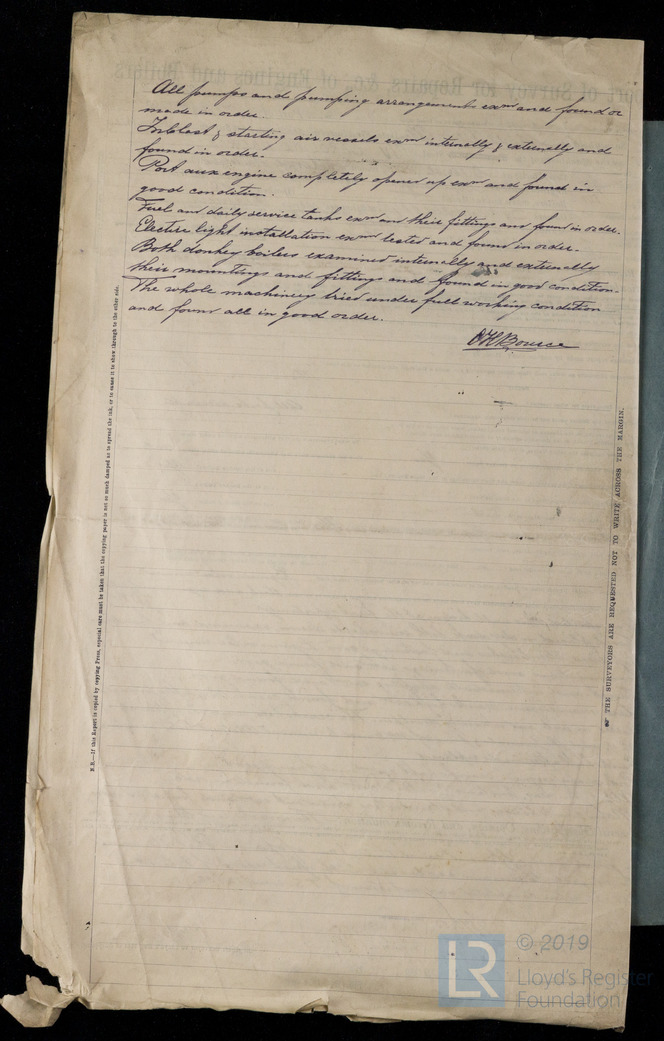 All pumps and pumping arrangements exmd and found or
made in order.
Inblast & starting air vessels exmd internally & externally and
found in order.
Port aux engine completely opened up exmd and found in
good condition.
Fuel and daily service tanks exmd and their fittings and found in order.
Electric light installation exmd tested and found in order.
Both donkey boilers examined internally and externally
their mountings and fittings and found in good condition.
The whole machinery tried under full working condition
and found all in good order.
N.B.—If this Report is copied by copying Press, especial care must be taken that the copying paper is not so much damped as to spread the ink, or to cause it to show through to the other side.
THE SURVEYORS ARE REQUESTED NOT TO WRITE ACROSS THE MARGIN.
LR
© 2019
Lloyd's Register
Foundation